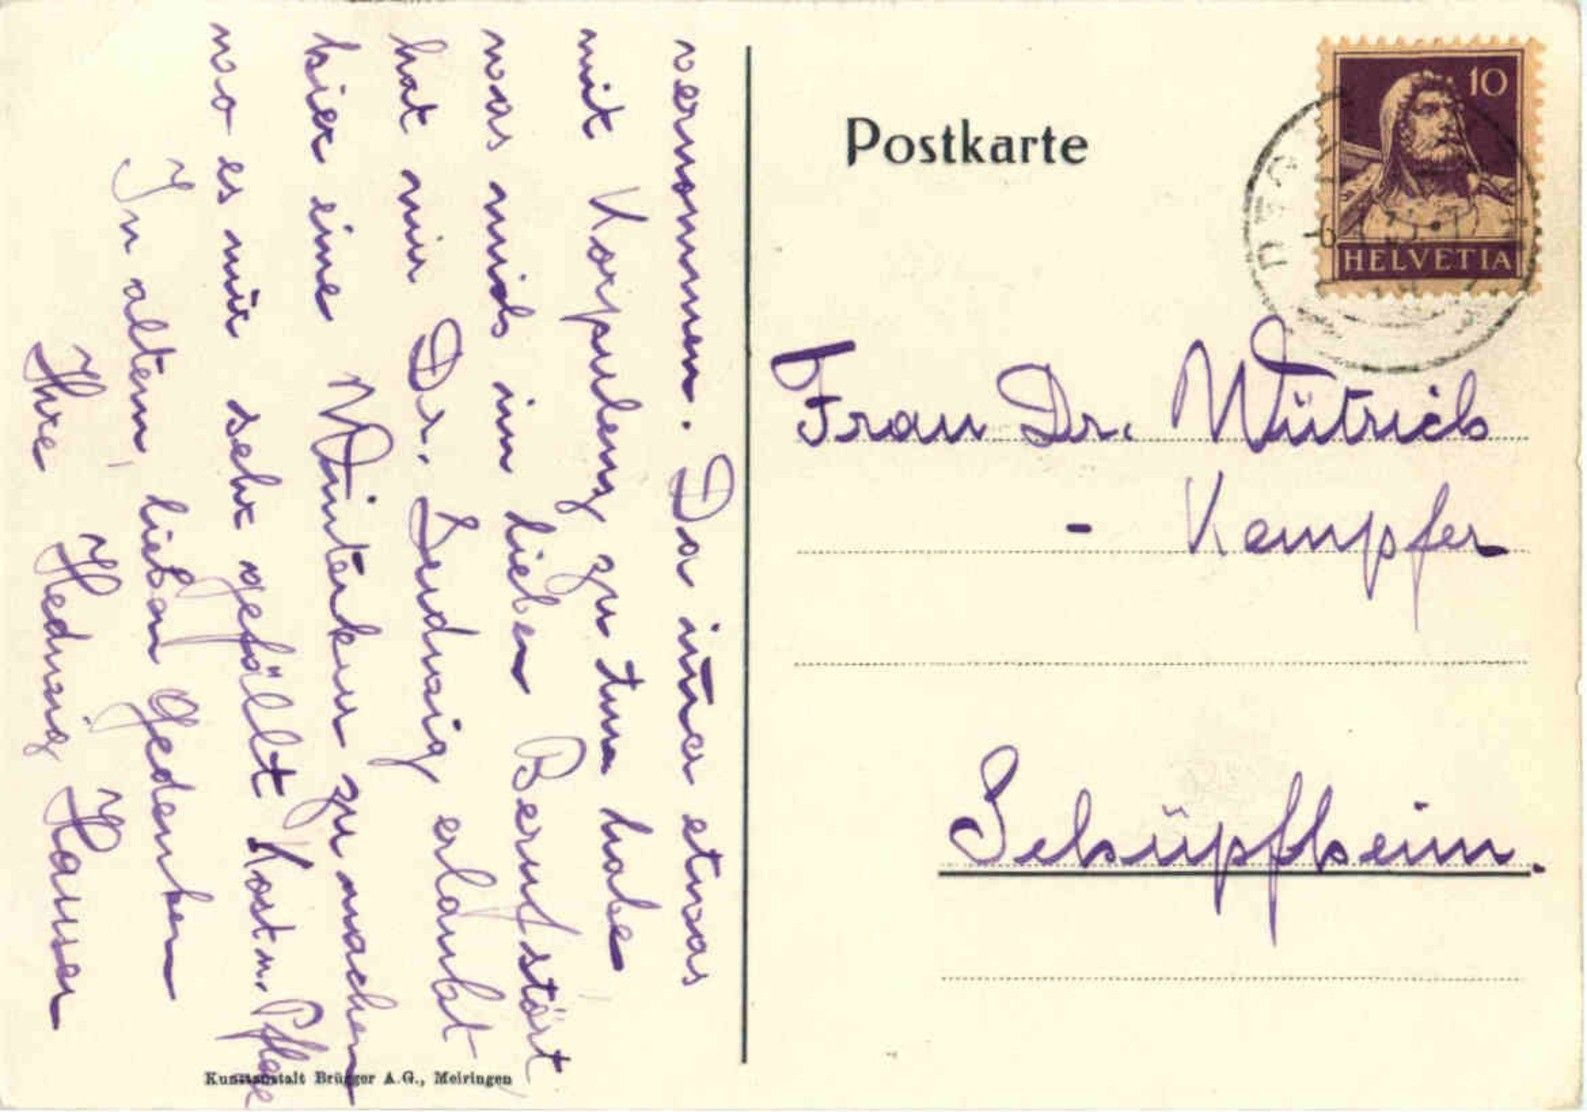 vernommen. Da immer etwas
mit Korpulenz zu tun habe
was mich im lieben Beruf stört
hat mir Dr. Ludwig erlaubt
hier eine Winterkur zu machen
wo es mir sehr gefällt Kost u. Pflege
In altem, lieben Gedenken
Ihre Hedwig Hauser
Postkarte
10
HELVETIA
Frau Dr. Wütrich
- Kempfer
Schüpfheim.
Kunstanstalt Brügger A.G., Meiringen